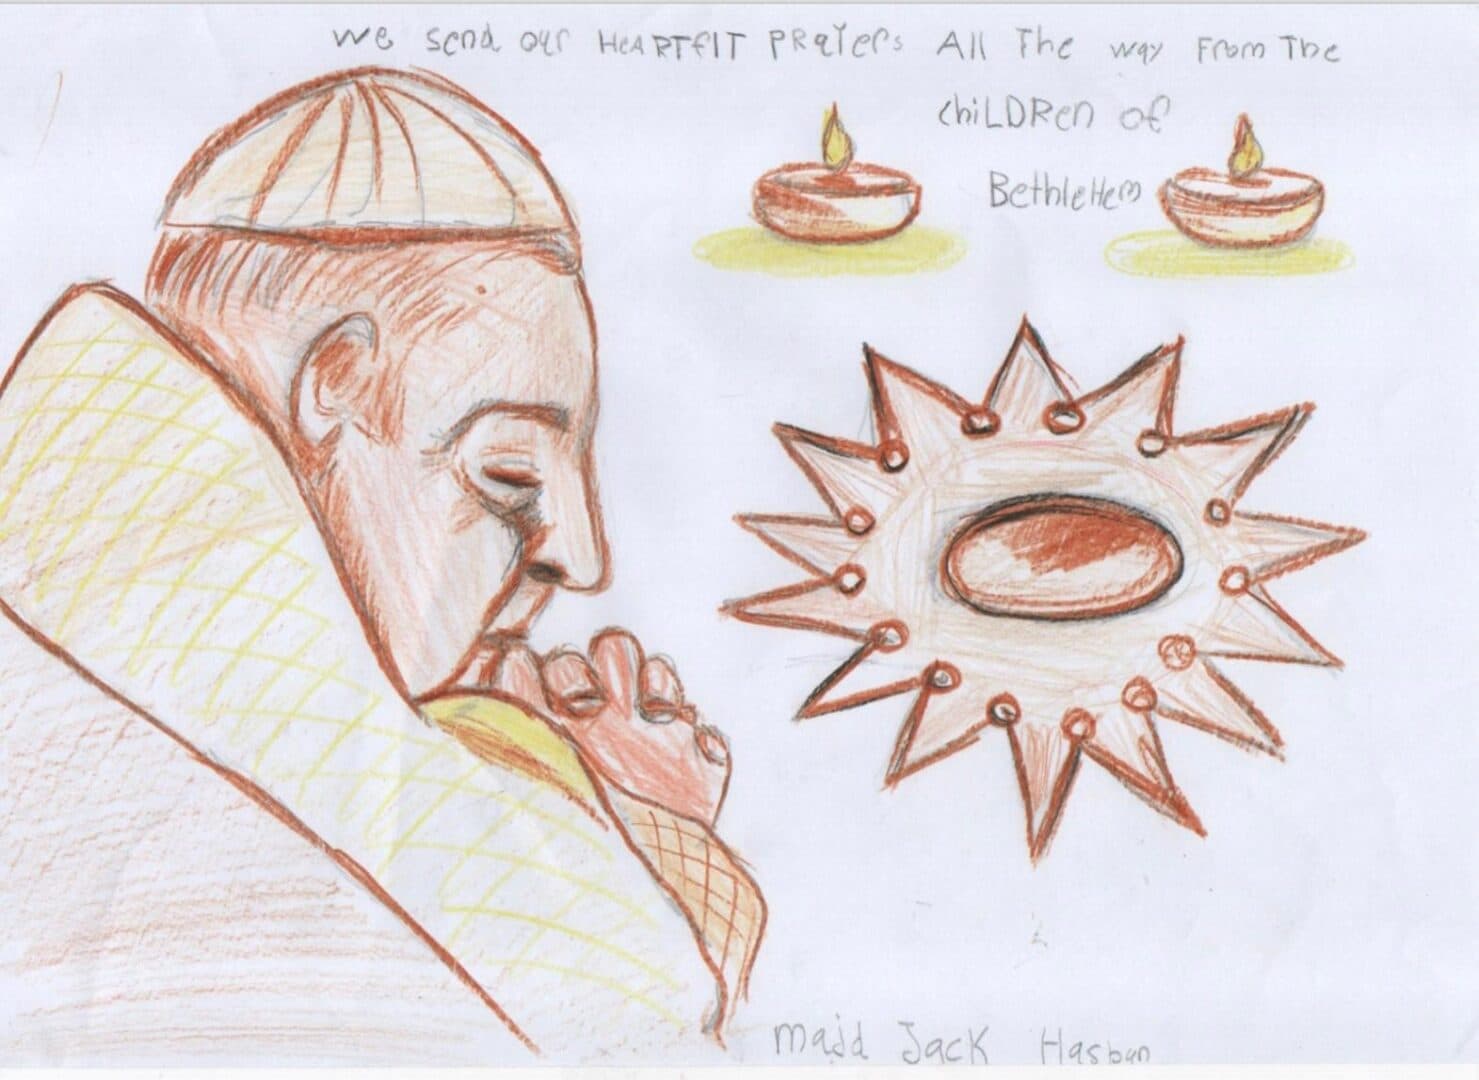 We send our HeARTfelT PRaYers All The way From The
chiLDRen of
BethleHem
majd Jack Hasban